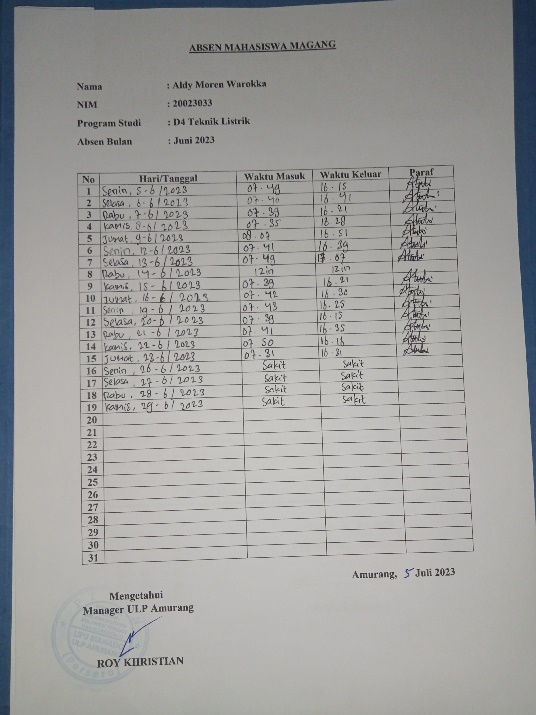 ABSEN MAHASISWA MAGANG
Nama : Aldy Moren Warokka
NIM : 20023033
Program Studi : D4 Teknik Listrik
Absen Bulan : Juni 2023
No Hari/Tanggal Waktu Masuk Waktu Keluar Paraf
1 Senin, 5-6/2023 07-49 16-15
2 Selasa, 6-6/2023 07-40 16-41
3 Rabu, 7-6/2023 07-39 16-31
4 Kamis, 8-6/2023 07-35 16-28
5 Jumat 9-6/2023 08-07 16-51
6 Senin, 12-6/2023 07-41 16-39
7 Selasa, 13-6/2023 07-49 17-07
8 Rabu, 14-6/2023 Izin Izin
9 Kamis, 15-6/2023 07-39 16-21
10 Jumat, 16-6/2023 07-42 16-30
11 Senin, 19-6/2023 07-43 16-25
12 Selasa, 20-6/2023 07-39 16-15
13 Rabu, 21-6/2023 07-41 16-35
14 Kamis, 22-6/2023 07 50 16-16
15 Jumat, 23-6/2023 07-31 16-31
16 Senin, 26-6/2023 Sakit Sakit
17 Selasa, 27-6/2023 Sakit Sakit
18 Rabu, 28-6/2023 Sakit Sakit
19 Kamis, 29-6/2023 Sakit Sakit
20
21
22
23
24
25
26
27
28
29
30
31
Amurang, 5 Juli 2023
Mengetahui
Manager ULP Amurang
ROY KHRISTIAN